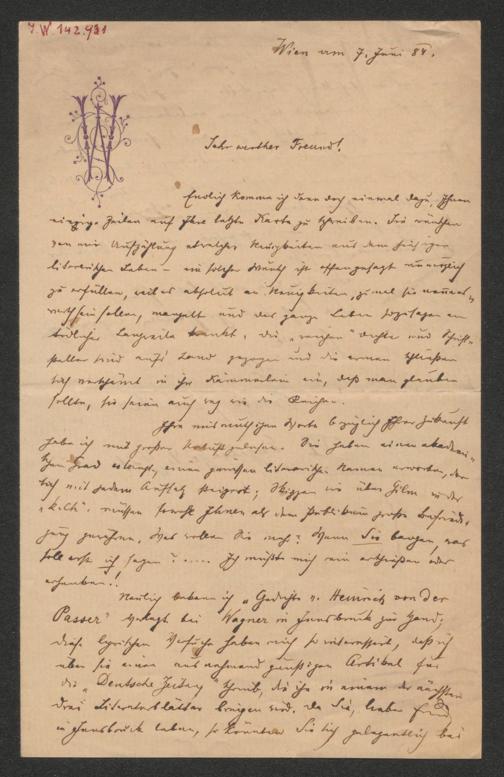 I.N 142.981
Wien am 7. Juni 84.
Sehr werther Freund!
Endlich komme ich denn doch einmal dazu, Ihnen
einige Zeilen auf Ihre letzte Karte zu schreiben. Sie wünschen
von mir Aufzählung etwelcher Neuigkeiten aus dem hiesigen
literarischen Leben – ein solcher Wunsch ist offengesagt unmöglich
zu erfüllen, weil es absolut an Neuigkeiten, zumal sie nennens-
werth sein sollen, mangelt und das ganze Leben sozusagen an
tödlicher Langweile krankt, die „reichen" Dichter und Schrift-
steller sind aufs Land gezogen und die armen schließen
sich verschämt in ihr Kämmerlein ein, daß man glauben
sollte, sie seien auch weg wie die Reichen.
Ihre Worte bezüglich Ihrer Zukunft
habe ich mit großer gelesen. Sie haben einen akademi-
schen Grad erlangt, einen gewissen literarischen Namen erworben, der
sich mit jedem Aufsatz steigert; Skizzen wie über Gilm in der
müssen sowohl Ihnen als dem Publikum große Befriedi-
gung gewähren. Was wollen Sie mehr? Wenn Sie bangen, was
soll erst ich sagen? ..... Ich müßte mich rein erschießen oder
erhenken!!
Neulich bekam ich „Gedichte v. Heinrich von der
Passer" verlegt bei Wagner in Innsbruck zur Hand;
diese lyrischen Versuche haben mich so interessirt, daß ich
über sie einen ausnehmend günstigen Artikel für
die „Deutsche Zeitung" schrieb, die ihn in einem der nächsten
drei Literaturblätter bringen wird. Da Sie, lieber Freund,
in Innsbruck leben, so könnten Sie sich gelegentlich bei